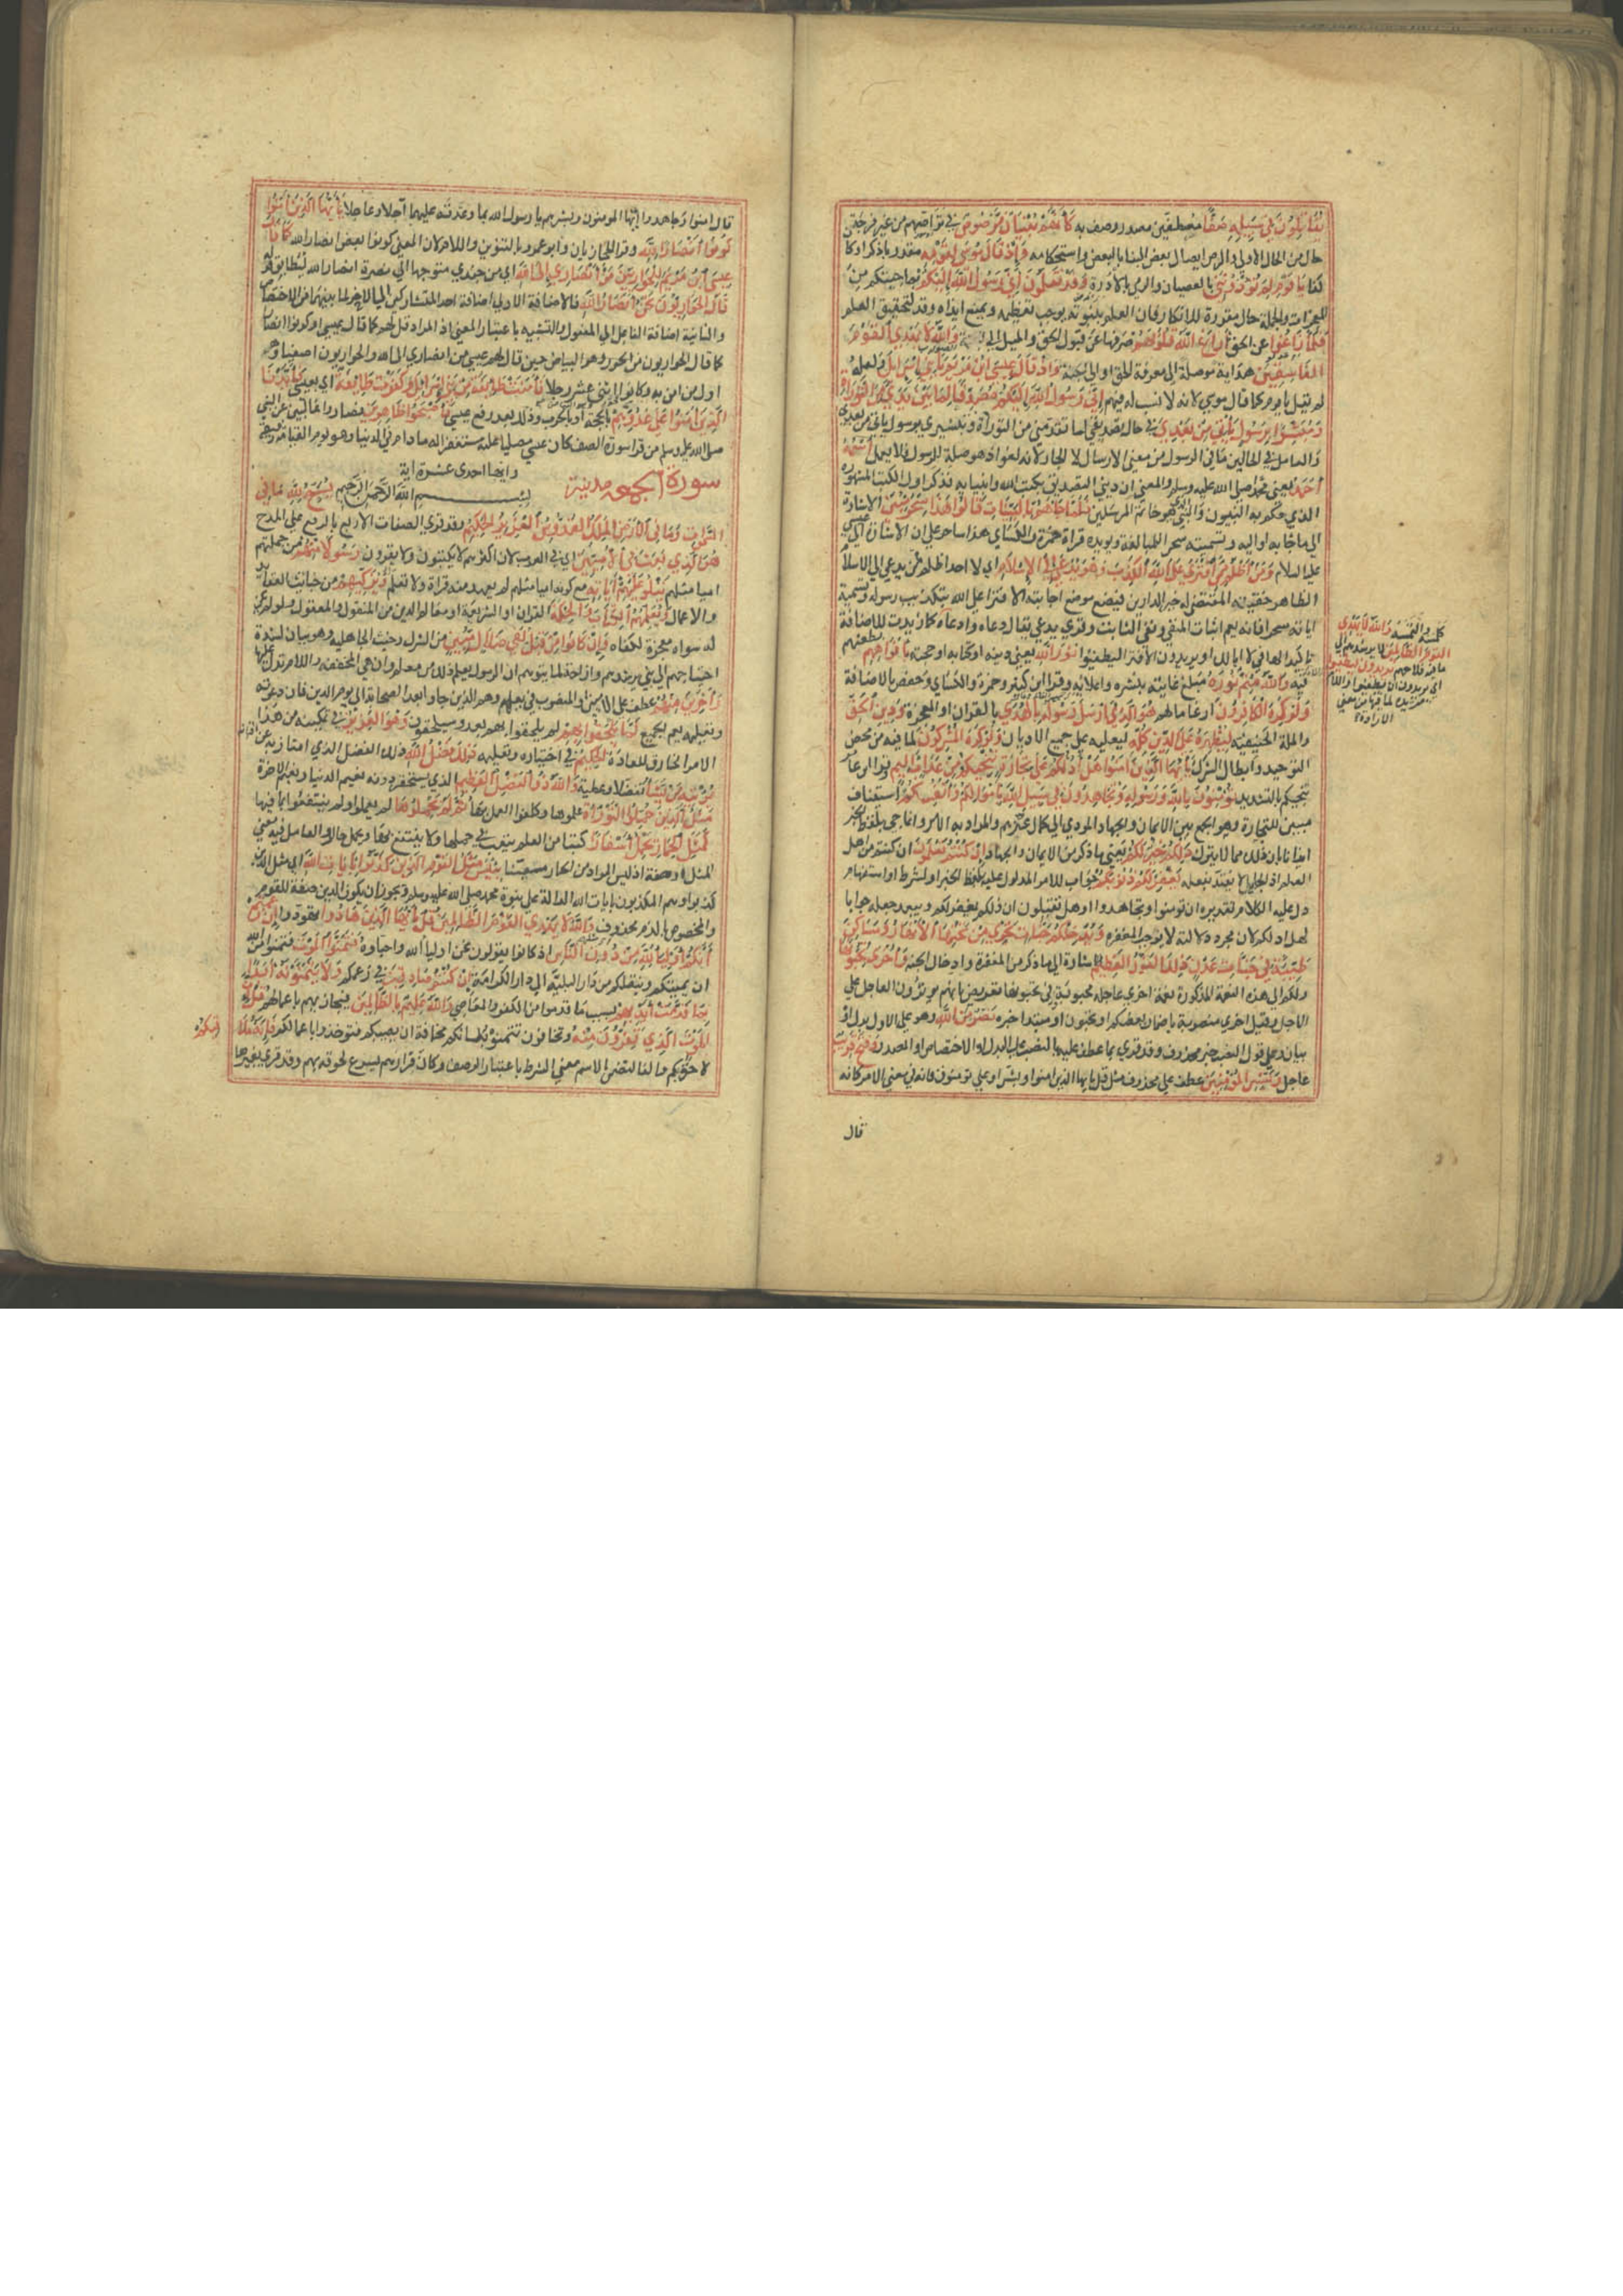 يُقَاتِلُونَ فِي سَبِيلِهِ صَفًّا مصطفين مصدر وصف به كَأَنَّهُمْ بُنْيَانٌ مَرْصُوصٌ في تراصهم من غير فرجة
حال من الحال الاولى والرص ايصال بعض البنا بالبعض واستحكامه وَإِذْ قَالَ مُوسَى لِقَوْمِهِ مقدر باذكر او كا
كذا يَا قَوْمِ لِمَ تُؤْذُونَنِي بالعصيان والرمي بالادرة وَقَدْ تَعْلَمُونَ أَنِّي رَسُولُ اللَّهِ إِلَيْكُمْ بما جيتكم من
المعجزات والجملة حال مقررة للانكار فان العلم بنبوته يوجب تعظيمه ويمنع ايذاه وقد لتحقيق العلم
فَلَمَّا زَاغُوا عن الحق أَزَاغَ اللَّهُ قُلُوبَهُمْ صرفها عن قبول الحق والميل الى وَاللَّهُ لَا يَهْدِي الْقَوْمَ
الْفَاسِقِينَ هداية موصلة الى معرفة الحق او الى الجنة وَإِذْ قَالَ عِيسَى ابْنُ مَرْيَمَ يَا بَنِي إِسْرَائِيلَ ولعله
لم يقل يا قوم كما قال موسي لانه لا نسب له فيهم إِنِّي رَسُولُ اللَّهِ إِلَيْكُمْ مُصَدِّقًا لِمَا بَيْنَ يَدَيَّ مِنَ التَّوْرَاةِ
وَمُبَشِّرًا بِرَسُولٍ يَأْتِي مِنْ بَعْدِي في حال تصديقي لما تقدمني من التوراة وتبشيري برسول ياتي من بعدي
والعامل في الحالين ما في الرسول من معنى الارسال لا الجار لانه لغو اذ هو صلة للرسول فلا يعمل اسْمُهُ
أَحْمَدُ يعني محمدا صلى الله عليه وسلم والمعني ان ديني التصديق بكتب الله وانبيايه فذكر اول الكتب المشهورة
الذي حكم به النبيون والنبي الذي هو خاتم المرسلين فَلَمَّا جَاءَهُمْ بِالْبَيِّنَاتِ قَالُوا هَذَا سِحْرٌ مُبِينٌ الاشارة
الى ما جا به او اليه وتسميته سحرا للمبالغة ويويده قراة حمزة والكساي هذا ساحر على ان الاشارة الى عيسى
عليه السلام وَمَنْ أَظْلَمُ مِمَّنِ افْتَرَى عَلَى اللَّهِ الْكَذِبَ وَهُوَ يُدْعَى إِلَى الْإِسْلَامِ اي لا احد اظلم ممن يدعي الى الاسلام
الظاهر حقيته المقتضي له خير الدارين فيضع موضع اجابته الافترا على الله بتكذيب رسوله وتسمية
اياته سحرا فانه يعم اثبات المنفي ونفي الثابت وقري يدعي يقال دعاه وادعاه
يُرِيدُونَ لِيُطْفِئُوا نُورَ اللَّهِ يعني دينه او كتابه او حجته بِأَفْوَاهِهِمْ بطعنهم
فيه وَاللَّهُ مُتِمُّ نُورِهِ مبلغ غايته بنشره واعلايه وقرا ابن كثير وحمزة والكساي وحفص بالاضافة
وَلَوْ كَرِهَ الْكَافِرُونَ ارغاما لهم هُوَ الَّذِي أَرْسَلَ رَسُولَهُ بِالْهُدَى بالقران او المعجزة وَدِينِ الْحَقِّ
والملة الحنيفية لِيُظْهِرَهُ عَلَى الدِّينِ كُلِّهِ ليعليه على جميع الاديان وَلَوْ كَرِهَ الْمُشْرِكُونَ لما فيه من محض
التوحيد وابطال الشرك يَا أَيُّهَا الَّذِينَ آمَنُوا هَلْ أَدُلُّكُمْ عَلَى تِجَارَةٍ تُنْجِيكُمْ مِنْ عَذَابٍ أَلِيمٍ وقرا ابن عامر
تنجيكم بالتشديد تُؤْمِنُونَ بِاللَّهِ وَرَسُولِهِ وَتُجَاهِدُونَ فِي سَبِيلِ اللَّهِ بِأَمْوَالِكُمْ وَأَنْفُسِكُمْ استيناف
مبين للتجارة وهو الجمع بين الايمان والجهاد المودي الى كمال عزهم والمراد به الامر وانما جي بلفظ الخبر
ايذانا بان ذلك مما لا يترك ذَلِكُمْ خَيْرٌ لَكُمْ يعني ما ذكر من الايمان والجهاد إِنْ كُنْتُمْ تَعْلَمُونَ ان كنتم من اهل
العلم اذ الجاهل لا يعتد بفعله يَغْفِرْ لَكُمْ ذُنُوبَكُمْ جواب للامر المدلول عليه بلفظ الخبر او لشرط او استفهام
دل عليه الكلام تقديره ان تومنوا وتجاهدوا او هل تقبلون ان ادلكم يغفر لكم ويبعد جعله جوابا
لهل ادلكم لان مجرد دلالته لا يوجب المغفرة وَيُدْخِلْكُمْ جَنَّاتٍ تَجْرِي مِنْ تَحْتِهَا الْأَنْهَارُ وَمَسَاكِنَ
طَيِّبَةً فِي جَنَّاتِ عَدْنٍ ذَلِكَ الْفَوْزُ الْعَظِيمُ الاشارة الى ما ذكر من المغفرة وادخال الجنة وَأُخْرَى تُحِبُّونَهَا
ولكم الى هذه النعمة المذكورة نعمة اخري عاجلة محبوبة وفي تحبونها تعريض بانهم يوثرون العاجل على
الاجل وقيل اخري منصوبة باضمار يعطيكم او تحبون او مبتدا خبره نَصْرٌ مِنَ اللَّهِ وهو على الاول بدل او
بيان وعلى قول النصب خبر محذوف وقد قري بما عطف عليه بالنصب على البدل او الاختصاص او المصدر وَفَتْحٌ قَرِيبٌ
عاجل وَبَشِّرِ الْمُؤْمِنِينَ عطف على محذوف مثل قل يا ايها الذين امنوا وبشر او على تومنون فانه في معني الامر كانه
قال
وَاللَّهُ لَا يَهْدِي
الْقَوْمَ الظَّالِمِينَ لا يرشدهم الى
ما فيه فلاحهم يُرِيدُونَ لِيُطْفِئُوا
اي يريدون ان يطفئوا واللام
مزيدة لما فيها من معني
الارادة
قال امنوا وجاهدوا ايها المومنون وبشرهم يا رسول الله بما وعدتهم عليهما آجلا وعاجلا يَا أَيُّهَا الَّذِينَ آمَنُوا
كُونُوا أَنْصَارَ اللَّهِ وقرا الحجازيان وابو عمرو بالتنوين واللام لان المعني كونوا بعض انصار الله كَمَا قَالَ
عِيسَى ابْنُ مَرْيَمَ لِلْحَوَارِيِّينَ مَنْ أَنْصَارِي إِلَى اللَّهِ اي من جندي متوجها الى نصرة الله ليطابق قوله
قَالَ الْحَوَارِيُّونَ نَحْنُ أَنْصَارُ اللَّهِ والاضافة الاولى اضافة احد المتشاركين الى الاخر لما بينهما من الاختصاص
والثانية اضافة الفاعل الى المفعول والتشبيه باعتبار المعني اذ المراد قل لهم كما قال عيسي او كونوا انصارا
كما قال الحواريون من الحور وهو البياض حين قال لهم عيسي من انصاري الى الله والحواريون اصفياوه
اول من امن به وكانوا اثني عشر رجلا فَآمَنَتْ طَائِفَةٌ مِنْ بَنِي إِسْرَائِيلَ وَكَفَرَتْ طَائِفَةٌ اي بعيسى فَأَيَّدْنَا
الَّذِينَ آمَنُوا عَلَى عَدُوِّهِمْ بالحجة او بالحرب وذلك بعد رفع عيسي فَأَصْبَحُوا ظَاهِرِينَ فصاروا غالبين عن النبي
صلى الله عليه وسلم من قرا سورة الصف كان عيسي مصليا عليه مستغفرا له ما دام في الدنيا وهو يوم القيامة رفيقه
سورة الجمعه مدنية وايها احدى عشرة اية
بِسْمِ اللَّهِ الرَّحْمَنِ الرَّحِيمِ يُسَبِّحُ لِلَّهِ مَا فِي
السَّمَوَاتِ وَمَا فِي الْأَرْضِ الْمَلِكِ الْقُدُّوسِ الْعَزِيزِ الْحَكِيمِ وقد قري الصفات الاربع بالرفع على المدح
هُوَ الَّذِي بَعَثَ فِي الْأُمِّيِّينَ اي في العرب لان اكثرهم لا يكتبون ولا يقرون رَسُولًا مِنْهُمْ من جملتهم
اميا مثلهم يَتْلُو عَلَيْهِمْ آيَاتِهِ مع كونه اميا مثلهم لم يعهد منه قراة ولا تعلم وَيُزَكِّيهِمْ من خبايث العقايد
والاعمال وَيُعَلِّمُهُمُ الْكِتَابَ وَالْحِكْمَةَ القران والشريعة او معالم الدين من المنقول والمعقول ولو لم يكن
له سواه معجزة لكفاه وَإِنْ كَانُوا مِنْ قَبْلُ لَفِي ضَلَالٍ مُبِينٍ من الشرك وخبث الجاهلية وهو بيان لشدة
احتياجهم الى نبي يرشدهم وازاحة لما يتوهم ان الرسول تعلم ذلك من معلم وان هي المخففة واللام تدل عليها
وَآخَرِينَ مِنْهُمْ عطف على الاميين او المنصوب في يعلمهم وهم الذين جاوا بعد الصحابة الى يوم الدين فان دعوته
وتعليمه يعم الجميع لَمَّا يَلْحَقُوا بِهِمْ لم يلحقوا بهم بعد وسيلحقون وَهُوَ الْعَزِيزُ في تمكينه من هذا
الامر الخارق للعادة الْحَكِيمُ في اختياره وتعليمه ذَلِكَ فَضْلُ اللَّهِ ذلك الفضل الذي امتاز به عن اقرانه
يُؤْتِيهِ مَنْ يَشَاءُ تفضلا وعطية وَاللَّهُ ذُو الْفَضْلِ الْعَظِيمِ الذي يستحقر دونه نعيم الدنيا ونعيم الاخرة
مَثَلُ الَّذِينَ حُمِّلُوا التَّوْرَاةَ علموها وكلفوا العمل بها ثُمَّ لَمْ يَحْمِلُوهَا لم يعملوا ولم ينتفعوا بما فيها
كَمَثَلِ الْحِمَارِ يَحْمِلُ أَسْفَارًا كتبا من العلم يتعب في حملها ولا ينتفع بها ويحمل حال والعامل فيه معني
المثل او صفة اذ ليس المراد من الحمار معينا بِئْسَ مَثَلُ الْقَوْمِ الَّذِينَ كَذَّبُوا بِآيَاتِ اللَّهِ اي مثل الذين
كذبوا وهم المكذبون بايات الله الدالة على نبوة محمد صلى الله عليه وسلم ويجوز ان يكون الذين صفة للقوم
والمخصوص بالذم محذوف وَاللَّهُ لَا يَهْدِي الْقَوْمَ الظَّالِمِينَ قُلْ يَا أَيُّهَا الَّذِينَ هَادُوا تهودوا إِنْ زَعَمْتُمْ
أَنَّكُمْ أَوْلِيَاءُ لِلَّهِ مِنْ دُونِ النَّاسِ اذ كانوا يقولون نحن اوليا الله واحباوه فَتَمَنَّوُا الْمَوْتَ فتمنوا من الله
ان يميتكم وينقلكم من دار البلية الى دار الكرامة إِنْ كُنْتُمْ صَادِقِينَ في زعمكم وَلَا يَتَمَنَّوْنَهُ أَبَدًا
بِمَا قَدَّمَتْ أَيْدِيهِمْ بسبب ما قدموا من الكفر والمعاصي وَاللَّهُ عَلِيمٌ بِالظَّالِمِينَ فيجازيهم باعمالهم قُلْ إِنَّ
الْمَوْتَ الَّذِي تَفِرُّونَ مِنْهُ وتخافون تتمنوه بلسانكم مخافة ان يصيبكم فتوخذوا باعمالكم فَإِنَّهُ مُلَاقِيكُمْ
لاحق بكم والفا لتضمن الاسم معني الشرط باعتبار الوصف وكان فرارهم يسرع لحوقه بهم وقد قري بغيرها